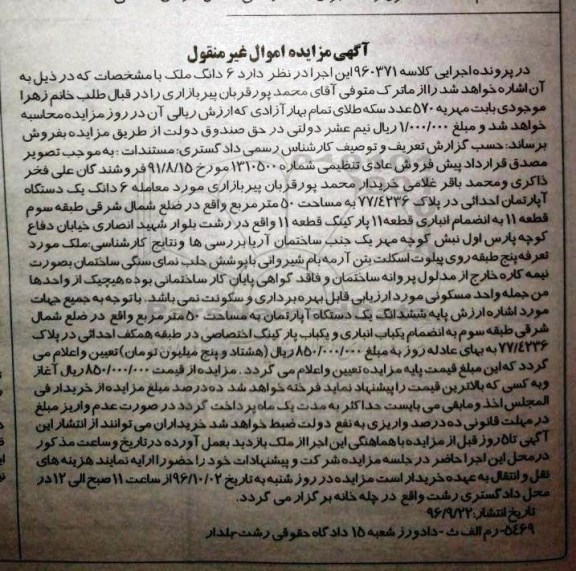 آگهی مزایده اموال غیرمنقول
در پرونده اجرایی کلاسه ۹۶۰۳۷۱ این اجرا در نظر دارد ۶ دانگ ملک با مشخصات که در ذیل به
آن اشاره خواهد شد را از ماترک متوفی آقای محمد پورقربان پیربازاری را در قبال طلب خانم زهرا
موجودی بابت مهریه ۵۷۰ عدد سکه طلای تمام بهار آزادی که ارزش ریالی آن در روز مزایده محاسبه
خواهد شد و مبلغ ۱/۰۰۰/۰۰۰ ریال نیم عشر دولتی در حق صندوق دولت از طریق مزایده بفروش
برساند: حسب گزارش تعریف و توصیف کارشناس رسمی دادگستری: مستندات: به موجب تصویر
مصدق قرارداد پیش فروش عادی تنظیمی شماره ۱۳۱۰۵۰۰ مورخ ۹۱/۸/۱۵ فروشندگان علی فخر
ذاکری و محمد باقر غلامی خریدار محمد پورقربان پیربازاری مورد معامله ۶ دانگ یک دستگاه
آپارتمان احداثی در پلاک ۷۷/۴۲۳۶ به مساحت ۵۰ متر مربع واقع در ضلع شمال شرقی طبقه سوم
قطعه ۱۱ به انضمام انباری قطعه ۱۱ پارکینگ قطعه ۱۱ واقع در رشت بلوار شهید انصاری خیابان دفاع
کوچه پارس اول نبش کوچه مهر یک جنب ساختمان آریا بررسی ها و نتایج کارشناسی: ملک مورد
تعرفه پنج طبقه روی پیلوت اسکلت بتن آرمه بام شیروانی با پوشش حلب نمای سنگی ساختمان بصورت
نیمه کاره خارج از مدلول پروانه ساختمان و فاقد گواهی پایان کار ساختمانی بوده هیچیک از واحدها
من جمله واحد مسکونی مورد ارزیابی قابل بهره برداری و سکونت نمی باشد. با توجه به جمیع جهات
مورد اشاره ارزش پایه ششدانگ یک دستگاه آپارتمان به مساحت ۵۰ متر مربع واقع در ضلع شمال
شرقی طبقه سوم به انضمام یکباب انباری و یکباب پارکینگ اختصاصی در طبقه همکف احداثی در پلاک
۷۷/۴۲۳۶ به بهای عادله روز به مبلغ ۸۵۰/۰۰۰/۰۰۰ ریال (هشتاد و پنج میلیون تومان) تعیین و اعلام می
گردد که این مبلغ قیمت پایه مزایده تعیین و اعلام می گردد. مزایده از قیمت ۸۵۰/۰۰۰/۰۰۰ ریال آغاز
و به کسی که بالاترین قیمت را پیشنهاد نماید فروخته خواهد شد ده درصد مبلغ مزایده از خریدار فی
المجلس اخذ و مابقی می بایست حداکثر به مدت یک ماه پرداخت گردد در صورت عدم واریز مبلغ
در مهلت قانونی ده درصد واریزی به نفع دولت ضبط خواهد شد خریداران می توانند از انتشار این
آگهی تا ۵ روز قبل از مزایده با هماهنگی این اجرا از ملک بازدید بعمل آورده در تاریخ و ساعت مذکور
در محل این اجرا حاضر در جلسه مزایده شرکت و پیشنهادات خود را حضورا ارایه نمایند هزینه های
نقل و انتقال به عهده خریدار است مزایده در روز شنبه به تاریخ ۹۶/۱۰/۰۲ از ساعت ۱۱ صبح الی ۱۲ در
محل دادگستری رشت واقع در چله خانه برگزار می گردد.
تاریخ انتشار: ۹۶/۹/۲۲
۵۴۶۹- رم الف ث - دادورز شعبه ۱۵ دادگاه حقوقی رشت - جلدار